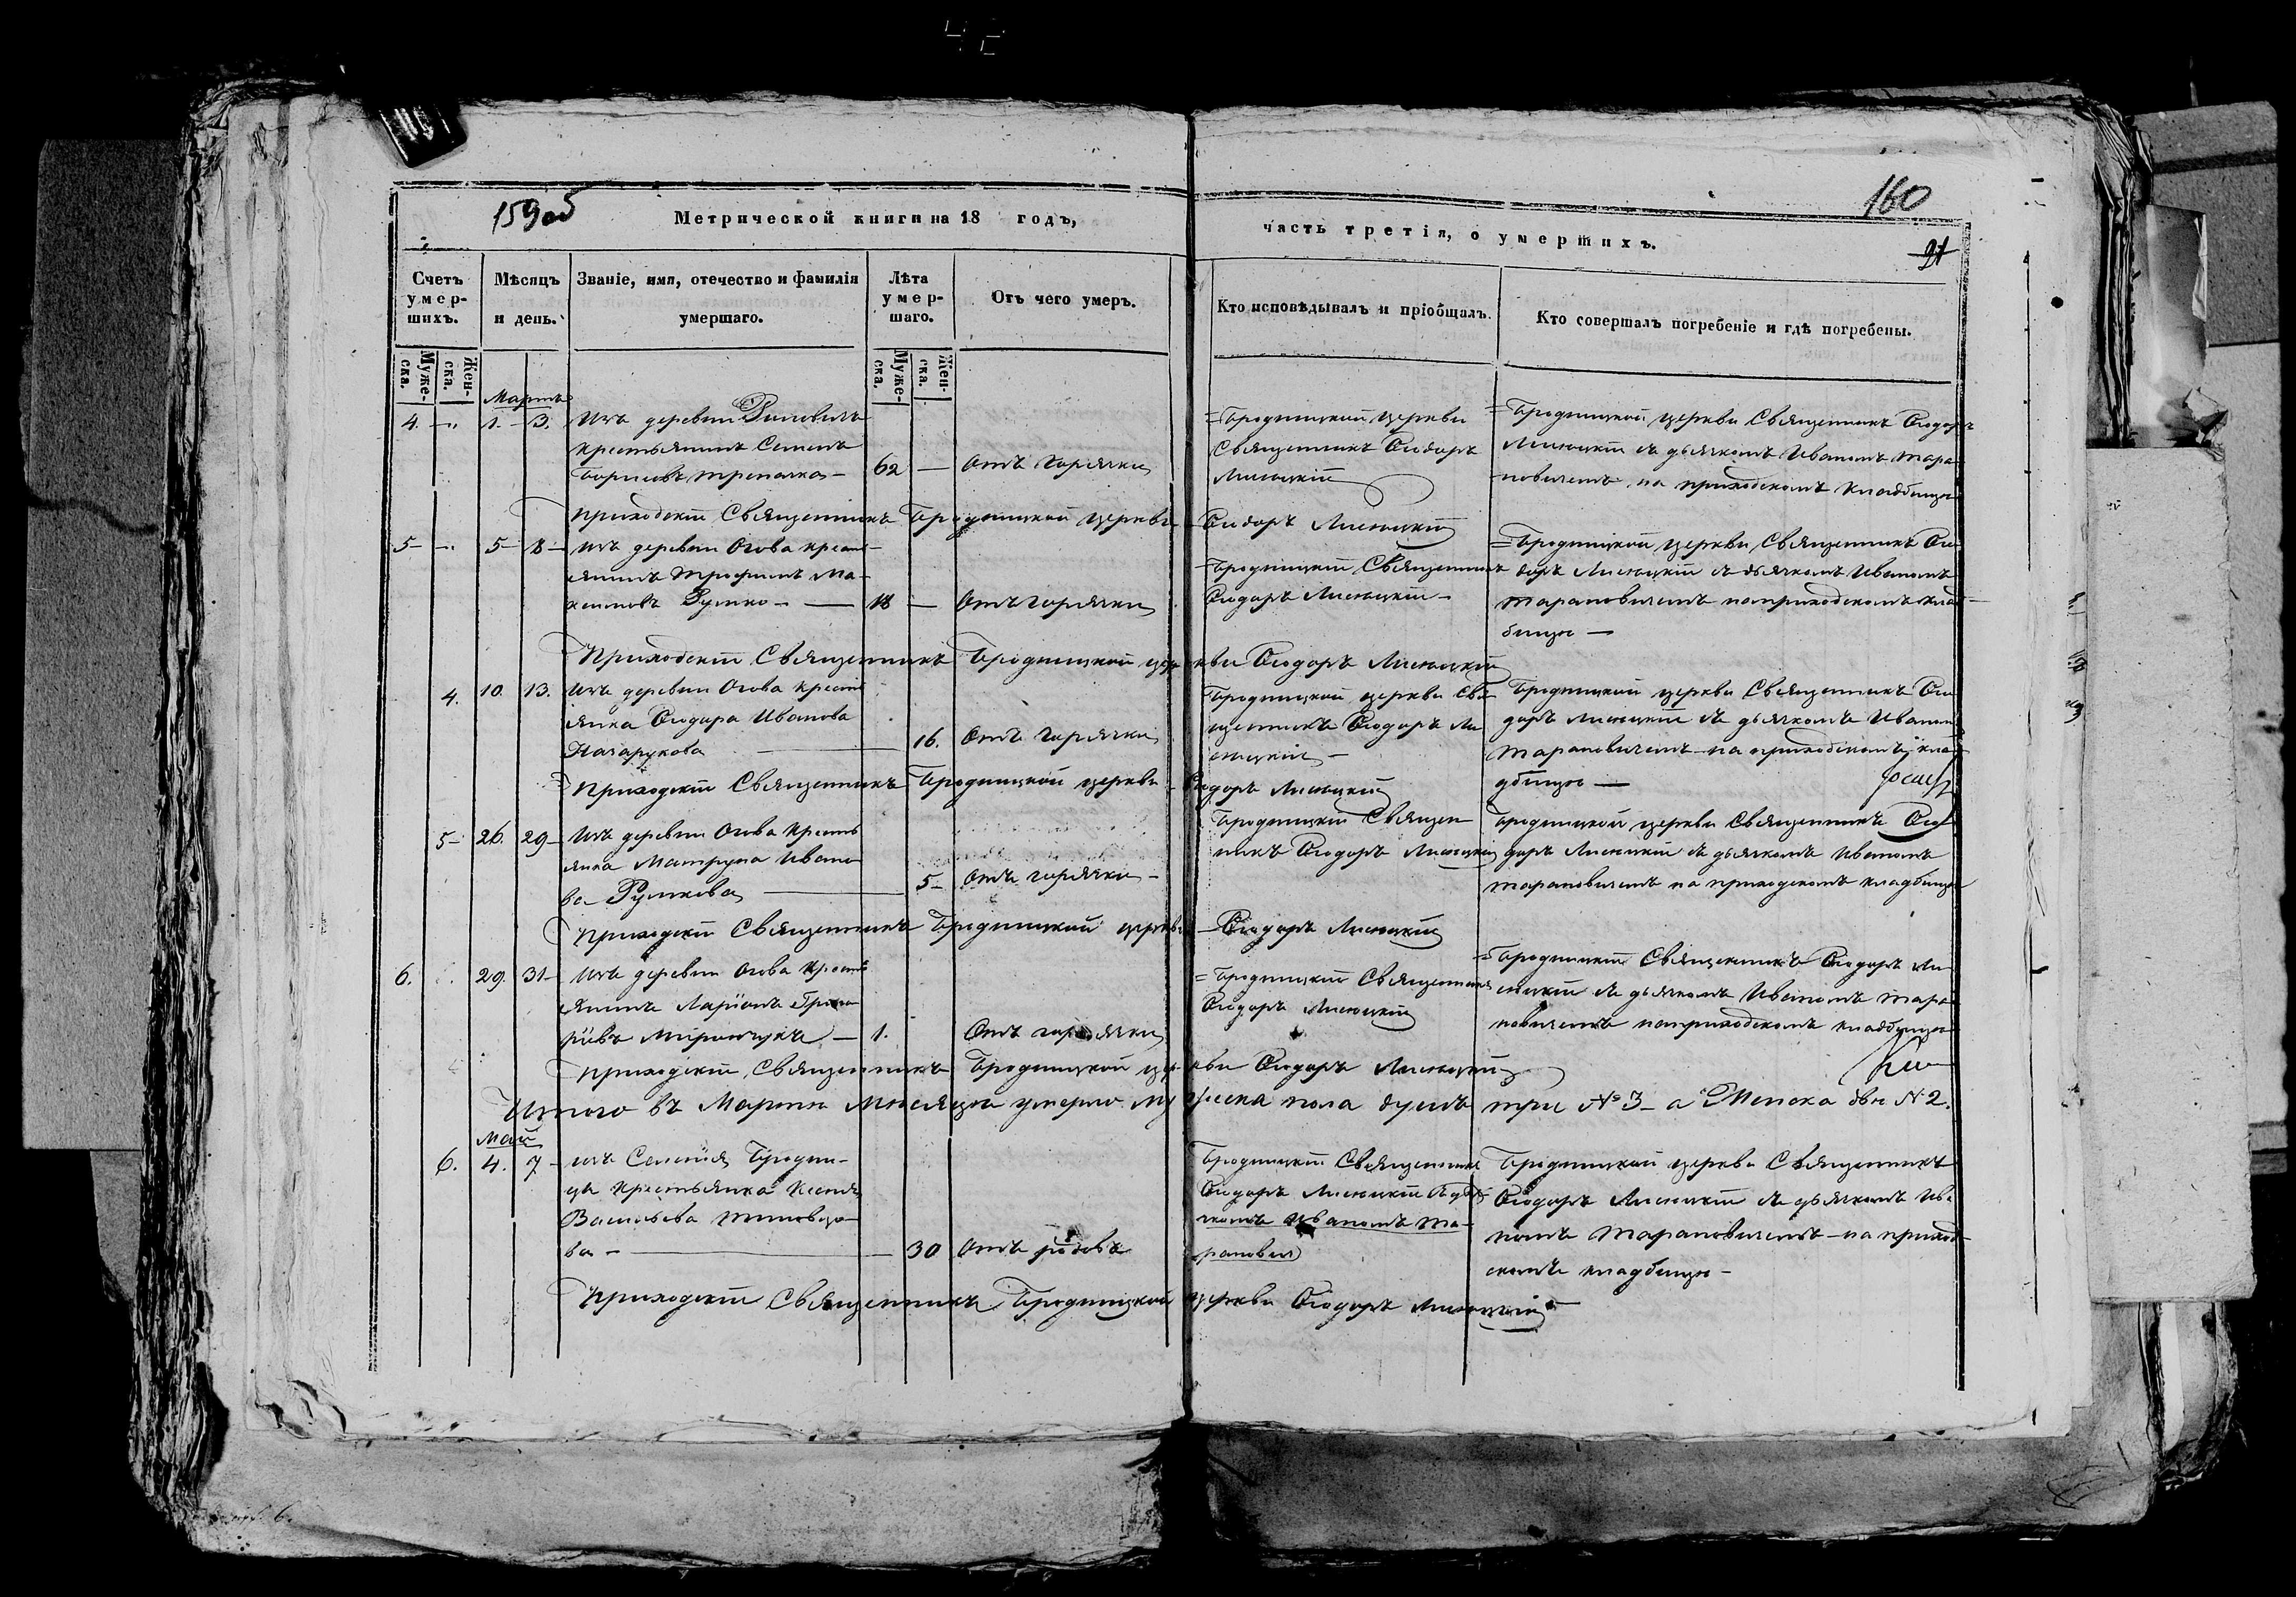 159об
160
21
Метрической книги на 18 годъ,
часть третія, о умершихъ.
Счетъ умер-шихъ.
Мѣсяцъ и день.
Званіе, имя, отечество и фамилія умершаго.
Лѣта умер-шаго.
Отъ чего умеръ.
Кто исповѣдывалъ и пріобщалъ.
Кто совершалъ погребеніе и гдѣ погребены.
Муже-ска.
Жен-ска.
Муже-ска.
Жен-ска.
Мартъ
4. 1. 3. Изъ деревни
крестьянинъ Семенъ
Борисовъ Трепачка
62 — Отъ горячки
Бродницкой церкви
Священникъ Ѳеодоръ
Лисецкій
Бродницкой церкви Священникъ Ѳеодоръ
Лисецкій съ дьячкомъ Иваномъ Тара-
новичемъ, на приходскомъ кладбищѣ
Приходскій Священникъ Бродницкой церкви Ѳеодоръ Лисецкій
5 5 8 Изъ деревни Огова крест-
янинъ Трофимъ Ма-
ксимовъ
18 — Отъ горячки
Бродницкій Священникъ
Ѳеодоръ Лисецкій
Бродницкой церкви Священникъ Ѳео-
доръ Лисецкій съ дьячкомъ Иваномъ
Тарановичемъ на приходскомъ клад-
бищѣ
Приходскій Священникъ Бродницкой церкви Ѳеодоръ Лисецкій
4. 10. 13. Изъ деревни Огова крестъ
янка Ѳеодора Иванова
Назарукова
16. Отъ горячки
Бродницкой церкви Свя-
щенникъ Ѳеодоръ Ли-
сецкій
Бродницкой церкви Священникъ Ѳео
доръ Лисецкій съ дьячкомъ Иваном
Тарановичемъ на приходскомъ кла
дбищѣ
Приходскій Священникъ Бродницкой церкви Ѳеодоръ Лисецкій
5 26. 29 Изъ деревни Огова кресть
янка Матруна Ивано-
ва
5 Отъ горячки
Бродницкій Священ
никъ Ѳеодоръ Лисецкій
Бродницкой церкви Священникъ Ѳео
доръ Лисецкій съ дьячкомъ Иваномъ
Тарановичемъ на приходскомъ кладбищѣ
Приходскій Священникъ Бродницкой церкви Ѳеодоръ Лисецкій
6. 29. 31 Изъ деревни Огова крестъ
янинъ Ларіонъ Григо
ріевъ Мирончукъ
1. Отъ горячки
Бродницкій Священникъ
Ѳеодоръ Лисецкій
Бродницкій Священникъ Ѳеодоръ Ли
сецкій съ дьячкомъ Иваномъ Тара
новичемъ на приходскомъ кладбищѣ
Приходскій Священникъ Бродницкой церкви Ѳеодоръ Лисецкій
Итого въ Мартѣ мѣсяцѣ умерло мужеска пола душъ три № 3 а Женска двѣ № 2.
Май
6. 4. 7 изъ Селенія Бродни-
цы Крестьянка Ксенія
Васильева
ва
30 Отъ родовъ
Бродницкій Священникъ
Ѳеодоръ Лисецкій съ дья
чкомъ Иваномъ Та-
рановичем
Бродницкой церкви Священникъ
Ѳеодоръ Лисецкій съ дьячкомъ Ива
номъ Тарановичемъ на приход
скомъ кладбищѣ
Приходскій Священникъ Бродницкой церкви Ѳеодоръ Лисецкій